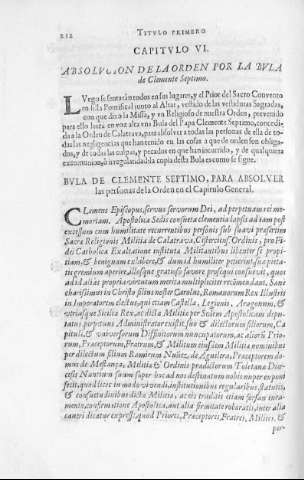 212 TITVLO PRIMERO
CAPITVLO VI.
ABSOLVCION DE LA ORDEN POR LA BVLA
de Clemente Septimo.
LVego se sentarán todos en sus lugares, y el Prior del Sacro Convento
en silla Pontifical junto al Altar, vestido de las vestiduras Sagradas,
con que dixo la Missa, y un Religioso de nuestra Orden, prevenido
para ello lea en voz alta una Bula del Papa Clemente Septimo, concedi-
da a la Orden de Calatrava, para absolver a todas las personas de ella de to-
das las negligencias que han tenido en las cosas a que de orden son obliga-
dos, y de todas las culpas, y pecados en que han incurrido, y de qualquiera
excomunion, è irregularidad la copia de esta Bula es como se sigue.
BVLA DE CLEMENTE SEPTIMO, PARA ABSOLVER
las personas de la Orden en el Capitulo General.
CLemens Episcopus, servus servorum Dei, ad perpetuam rei me-
moriam. Apostolica Sedis consueta clementia lapsis ad tam post
excessum cum humilitate recurrentibus personis sub suavi praesertim
Sacrae Religionis Militiae de Calatrava, Cisterciensis Ordinis, pro Fi-
dei Catholicae Exaltatione instituta Militantibus libenter se propi-
tiam, & benignam exhibere, & dum id humiliter petentibus pieta-
tis gremium aperire, illosque gratioso favore prosequi consuevit, quos
ad id alias propriarum virtutum merita multipliciter recommendant. Sane
charissimus in Christo filius noster Carolus, Romanorum Rex Illustris
in Imperatorem electus, qui etiam Castellae, Legionis, Aragonum, &
utriusque Siciliae Rex, ac dictae Militiae per Sedem Apostolicam depu-
tatus perpetuus Administrator existit, suo, & dilectorum filiorum, Ca-
pituli, & universorum Diffinitorum nuncupatorum, ac aliorum Prio-
rum, Praeceptorum, Fratrum, & Militum eiusdem Militiae nominibus
per dilectum filium Ramirum Nuñez, de Aguilera, Praeceptorem do-
mus de Mestança, Militiae & Ordinis praedictorum Toletanae Dioe-
cesis Nuntium suum super hoc ad nos destinatum nobis nuper exponi
fecit, quod licet in modo vivendi, institutionibus regularibus, statutis,
& consuetudinibus dictae Militiae, actis traslatis etiam forsan iura-
mento, confirmatione Apostolica, aut alia firmitate roboratis, inter alia
caveri dicatur expressè, quod Priores, Praeceptores, Fratres, Milites, &
per-